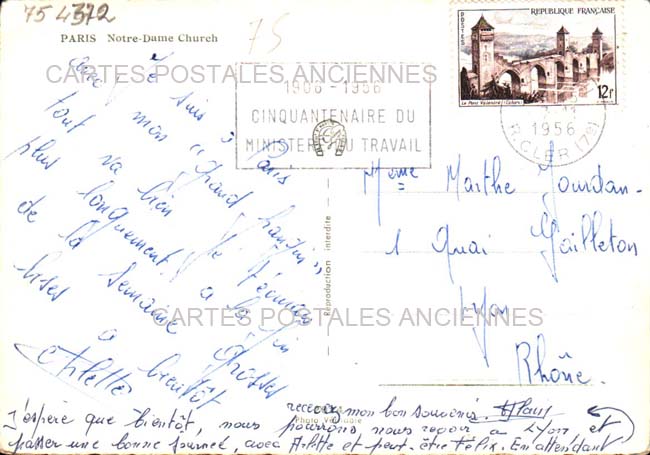 75 4372
75
PARIS Notre-Dame Church
CARTES POSTALES ANCIENNES
REPUBLIQUE FRANÇAISE
POSTES
Le Pont Valentré (Cahors)
12f
1906-1956
CINQUANTENAIRE DU
MINISTERE DU TRAVAIL
1956
R. CLER (7e)
Je suis à Paris
avec mon "Grand hantin"
tout va bien Je t'écrirai
plus longuement à la fin
de la semaine Grosses
bises à bientôt
Arlette
Reproduction interdite
Mme Marthe Jourdan
1 Quai Gailleton
Lyon
Rhône.
CARTES POSTALES ANCIENNES
recevez mon bon souvenir.
Photo Véritable
J'espère que bientôt, nous pourrons nous revoir à Lyon et
passer une bonne journée, avec Arlette et peut-être Félix. En attendant